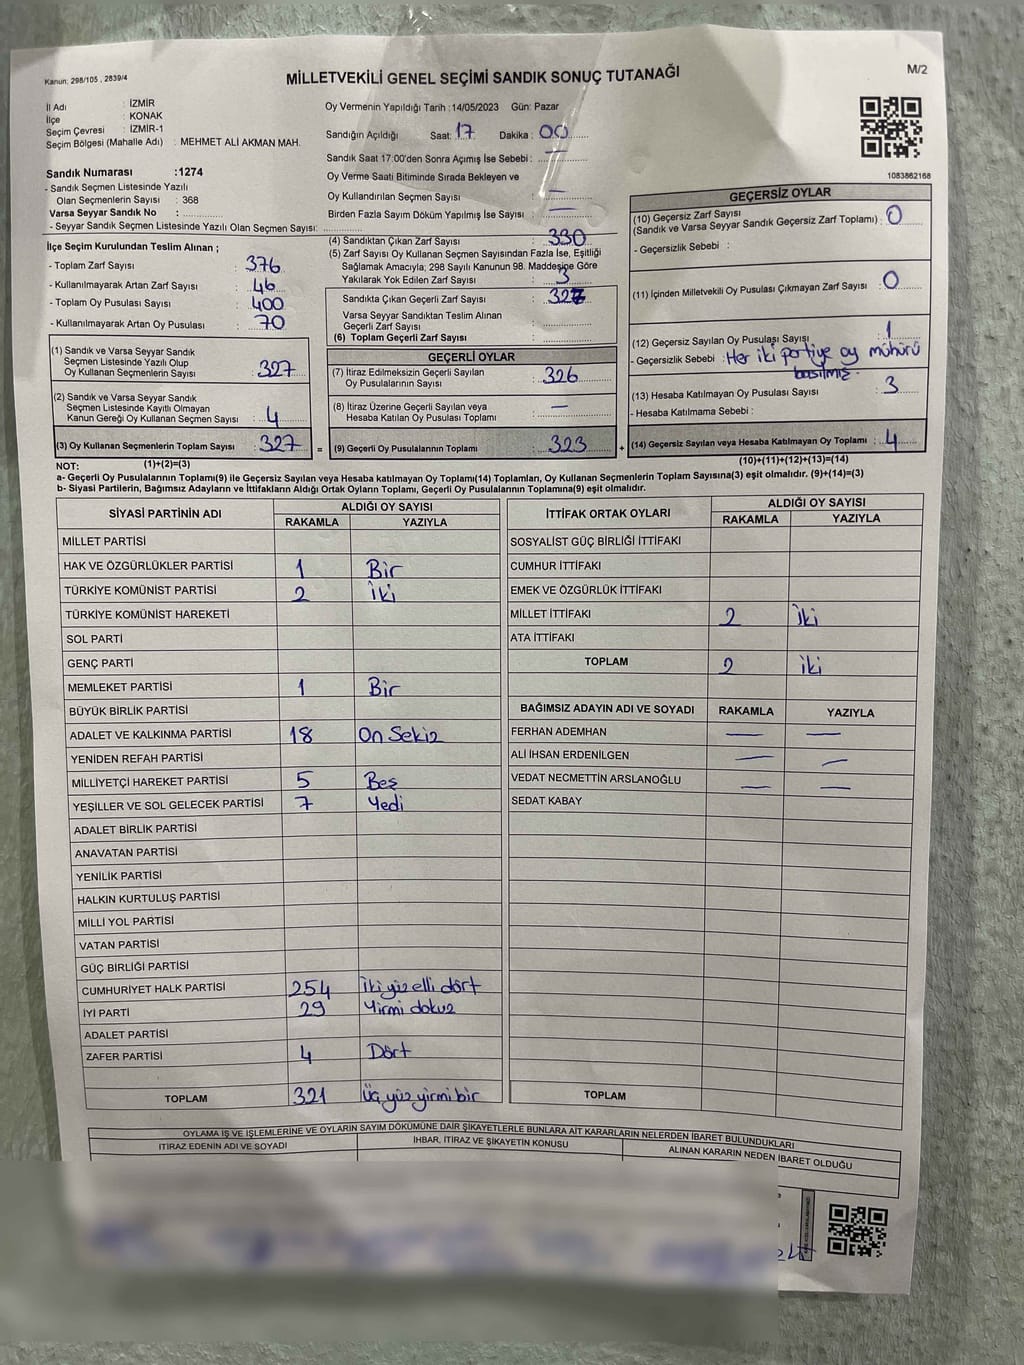 Kanun: 298/105 , 2839/4
MİLLETVEKİLİ GENEL SEÇİMİ SANDIK SONUÇ TUTANAĞI
M/2
İl Adı : İZMİR
İlçe : KONAK
Seçim Çevresi : İZMİR-1
Seçim Bölgesi (Mahalle Adı) : MEHMET ALİ AKMAN MAH.
Sandık Numarası :1274
- Sandık Seçmen Listesinde Yazılı
Olan Seçmenlerin Sayısı : 368
Varsa Seyyar Sandık No :
- Seyyar Sandık Seçmen Listesinde Yazılı Olan Seçmen Sayısı:
Oy Vermenin Yapıldığı Tarih :14/05/2023 Gün: Pazar
Sandığın Açıldığı Saat: 17 Dakika : 00
Sandık Saat 17:00'den Sonra Açımış İse Sebebi : —
Oy Verme Saati Bitiminde Sırada Bekleyen ve
Oy Kullandırılan Seçmen Sayısı —
Birden Fazla Sayım Döküm Yapılmış İse Sayısı : —
1083862168
İlçe Seçim Kurulundan Teslim Alınan ;
- Toplam Zarf Sayısı : 376
- Kullanılmayarak Artan Zarf Sayısı : 46
- Toplam Oy Pusulası Sayısı : 400
- Kullanılmayarak Artan Oy Pusulası : 70
(1) Sandık ve Varsa Seyyar Sandık
Seçmen Listesinde Yazılı Olup
Oy Kullanan Seçmenlerin Sayısı : 327
(2) Sandık ve Varsa Seyyar Sandık
Seçmen Listesinde Kayıtlı Olmayan
Kanun Gereği Oy Kullanan Seçmen Sayısı : 4
(3) Oy Kullanan Seçmenlerin Toplam Sayısı : 327 =
(4) Sandıktan Çıkan Zarf Sayısı : 330
(5) Zarf Sayısı Oy Kullanan Seçmen Sayısından Fazla İse, Eşitliği
Sağlamak Amacıyla; 298 Sayılı Kanunun 98. Maddesine Göre
Yakılarak Yok Edilen Zarf Sayısı : 3
Sandıkta Çıkan Geçerli Zarf Sayısı : 327
Varsa Seyyar Sandıktan Teslim Alınan
Geçerli Zarf Sayısı :
(6) Toplam Geçerli Zarf Sayısı :
GEÇERLİ OYLAR
(7) İtiraz Edilmeksizin Geçerli Sayılan
Oy Pusulalarının Sayısı : 326
(8) İtiraz Üzerine Geçerli Sayılan veya
Hesaba Katılan Oy Pusulası Toplamı : —
(9) Geçerli Oy Pusulalarının Toplamı : 323 +
GEÇERSİZ OYLAR
(10) Geçersiz Zarf Sayısı
(Sandık ve Varsa Seyyar Sandık Geçersiz Zarf Toplamı) : 0
- Geçersizlik Sebebi :
(11) İçinden Milletvekili Oy Pusulası Çıkmayan Zarf Sayısı : 0
(12) Geçersiz Sayılan Oy Pusulası Sayısı : 1
- Geçersizlik Sebebi : Her iki partiye oy mühürü
basılmış.
(13) Hesaba Katılmayan Oy Pusulası Sayısı : 3
- Hesaba Katılmama Sebebi :
(14) Geçersiz Sayılan veya Hesaba Katılmayan Oy Toplamı : 4
NOT: (1)+(2)=(3)
(10)+(11)+(12)+(13)=(14)
a- Geçerli Oy Pusulalarının Toplamı(9) ile Geçersiz Sayılan veya Hesaba katılmayan Oy Toplamı(14) Toplamları, Oy Kullanan Seçmenlerin Toplam Sayısına(3) eşit olmalıdır. (9)+(14)=(3)
b- Siyasi Partilerin, Bağımsız Adayların ve İttifakların Aldığı Ortak Oyların Toplamı, Geçerli Oy Pusulalarının Toplamına(9) eşit olmalıdır.
SİYASİ PARTİNİN ADI ALDIĞI OY SAYISI
RAKAMLA YAZIYLA
MİLLET PARTİSİ
HAK VE ÖZGÜRLÜKLER PARTİSİ 1 Bir
TÜRKİYE KOMÜNİST PARTİSİ 2 İki
TÜRKİYE KOMÜNİST HAREKETİ
SOL PARTİ
GENÇ PARTİ
MEMLEKET PARTİSİ 1 Bir
BÜYÜK BİRLİK PARTİSİ
ADALET VE KALKINMA PARTİSİ 18 On Sekiz
YENİDEN REFAH PARTİSİ
MİLLİYETÇİ HAREKET PARTİSİ 5 Beş
YEŞİLLER VE SOL GELECEK PARTİSİ 7 Yedi
ADALET BİRLİK PARTİSİ
ANAVATAN PARTİSİ
YENİLİK PARTİSİ
HALKIN KURTULUŞ PARTİSİ
MİLLİ YOL PARTİSİ
VATAN PARTİSİ
GÜÇ BİRLİĞİ PARTİSİ
CUMHURİYET HALK PARTİSİ 254 İki yüz elli dört
İYİ PARTİ 29 Yirmi dokuz
ADALET PARTİSİ
ZAFER PARTİSİ 4 Dört
TOPLAM 321 Üç yüz yirmi bir
İTTİFAK ORTAK OYLARI ALDIĞI OY SAYISI
RAKAMLA YAZIYLA
SOSYALİST GÜÇ BİRLİĞİ İTTİFAKI
CUMHUR İTTİFAKI
EMEK VE ÖZGÜRLÜK İTTİFAKI
MİLLET İTTİFAKI 2 İki
ATA İTTİFAKI
TOPLAM 2 iki
BAĞIMSIZ ADAYIN ADI VE SOYADI RAKAMLA YAZIYLA
FERHAN ADEMHAN — —
ALİ İHSAN ERDENİLGEN — —
VEDAT NECMETTİN ARSLANOĞLU — —
SEDAT KABAY
TOPLAM
OYLAMA İŞ VE İŞLEMLERİNE VE OYLARIN SAYIM DÖKÜMÜNE DAİR ŞİKAYETLERLE BUNLARA AİT KARARLARIN NELERDEN İBARET BULUNDUKLARI
İTİRAZ EDENİN ADI VE SOYADI İHBAR, İTİRAZ VE ŞİKAYETİN KONUSU ALINAN KARARIN NEDEN İBARET OLDUĞU